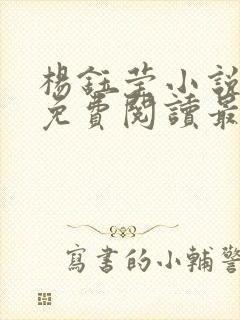 楊鈺莹小說
免費閱讀最
寫書的小輔警